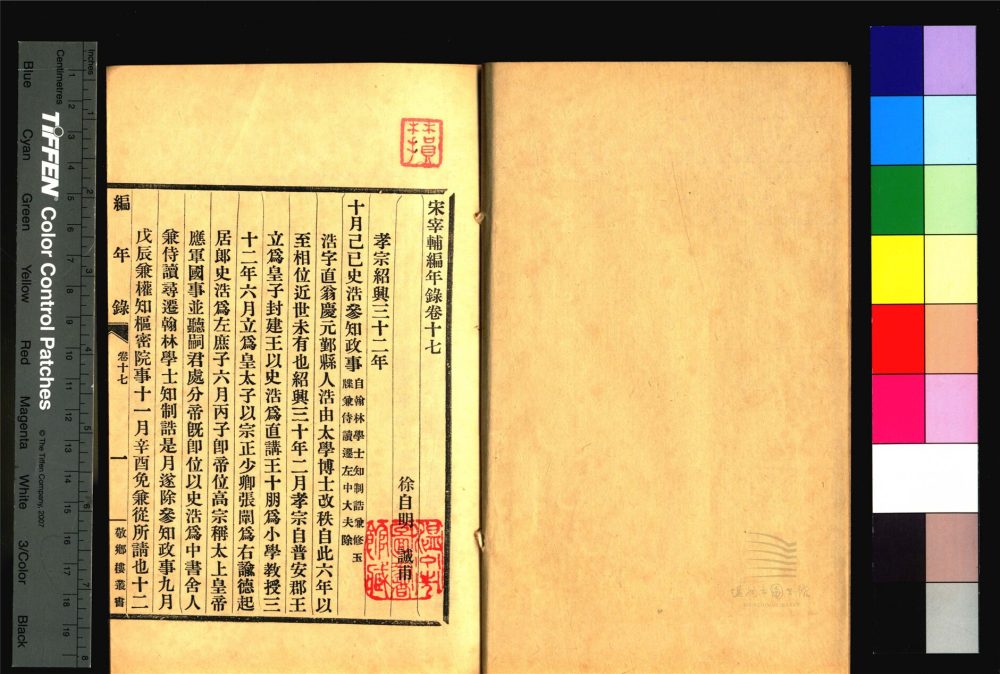 宋宰輔編年錄卷十七
徐自明 誠甫
孝宗紹興三十二年
十月己巳史浩參知政事自翰林學士知制誥兼修玉
牒兼侍讀遷左中大夫除
浩字直翁慶元鄞縣人浩由太學博士改秩自此六年以
至相位近世未有也紹興三十年二月孝宗自普安郡王
立爲皇子封建王以史浩爲直講王十朋爲小學教授三
十二年六月立爲皇太子以宗正少卿張闡爲右諭德起
居郎史浩爲左庶子六月丙子卽帝位高宗稱太上皇帝
應軍國事並聽嗣君處分帝旣卽位以史浩爲中書舍人
兼侍讀尋遷翰林學士知制誥是月遂除參知政事九月
戊辰兼權知樞密院事十一月辛酉免兼從所請也十二
編年錄
卷十七
一
敬鄉樓叢書
溫州市圖書館藏
Inches
Centimetres
TIFFEN Color Control Patches
© The Tiffen Company, 2007
Blue
Cyan
Green
Yellow
Red
Magenta
White
3/Color
Black
1 2 3 4 5 6 7 8 9 10 11 12 13 14 15 16 17 18 19
1 2 3 4 5 6 7 8